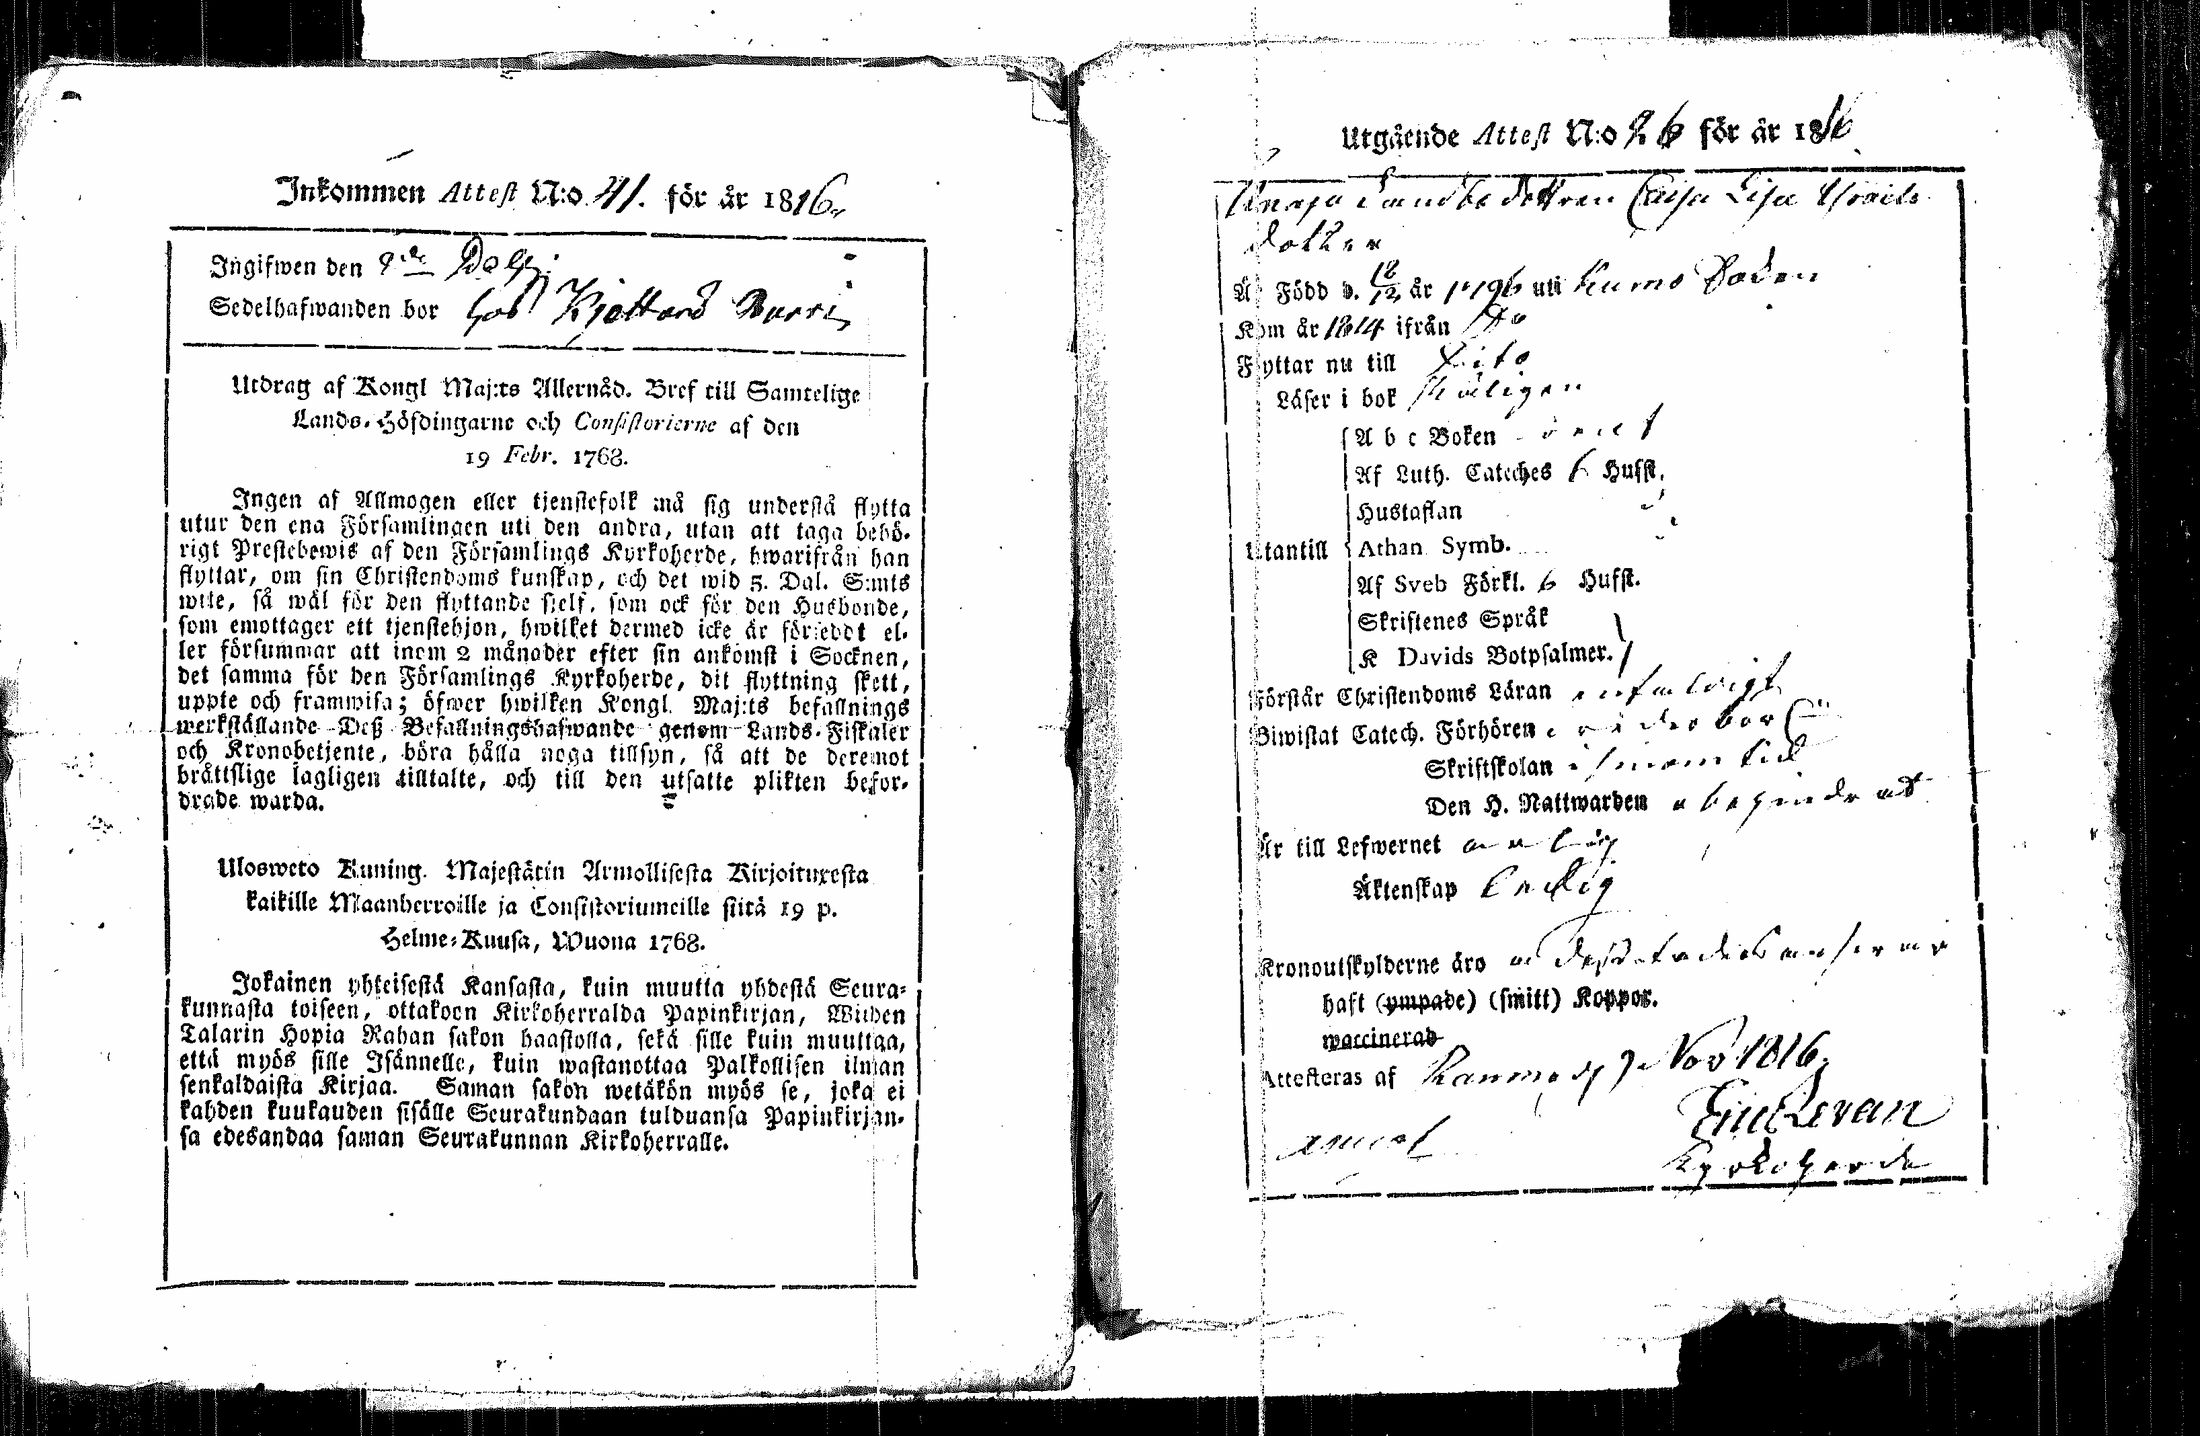 Inkommen Attest N:o 41. för år 1816.
Ingifwen den 9de
Sedelhafwanden bor hos
Utdrag af Kongl Maj:ts Allernåd. Bref till Samtelige
Lands-Höfdingarne och Consistorierne af den
19 Febr. 1768.
Ingen af Allmogen eller tjenstefolk må sig understå flytta
utur den ena Församlingen uti den andra, utan att taga behö-
rigt Prestebewis af den Församlings Kyrkoherde, hwarifrån han
flyttar, om sin Christendoms kunskap, och det wid 5. Dal. S:mts
wite, så wäl för den flyttande sjelf, som ock för den Husbonde,
som emottager ett tjenstehjon, hwilket dermed icke är förseddt el-
ler försummar att inom 2 månader efter sin ankomst i Socknen,
det samma för den Församlings Kyrkoherde, dit flyttning skett,
uppte och framwisa; öfwer hwilken Kongl. Maj:ts befallnings
werkställande Deß Befallningshafwande genom Lands-Fiskaler
och Kronobetjente, böra hålla noga tillsyn, så att de deremot
bråttslige lagligen tilltalte, och till den utsatte plikten befor-
drade warda.
Ulosweto Kuning. Majestätin Armollisesta Kirjoituxesta
kaikille Maanherroille ja Consistoriumeille siitä 19 p.
Helme-Kuusa, Wuona 1768.
Jokainen yhteisestä Kansasta, kuin muutta yhdestä Seura-
kunnasta toiseen, ottakoon Kirkoherralda Papinkirjan, Wiiden
Talarin Hopia Rahan sakon haastolla, sekä sille kuin muuttaa,
että myös sille Isännelle, kuin wastanottaa Palkollisen ilman
senkaldaista Kirjaa. Saman sakon wetäkön myös se, joka ei
kahden kuukauden sisälle Seurakundaan tulduansa Papinkirjan-
sa edesandaa saman Seurakunnan Kirkoherralle.
Utgående Attest N:o 26 för år 1816
Caisa Lisa Israels
dotter
Är Född d. 18/12 år 1796 uti Kumo Socken
Kom år 1814 ifrån Do
Flyttar nu till Dito
Läser i bok
A b c Boken
Af Luth. Cateches 6 Hufst.
Hustaflan
Utantill Athan. Symb.
Af Sveb Förkl. 6 Hufst.
Skriftenes Språk
K Davids Botpsalmer.
Förstår Christendoms Läran enfaldigt
Biwistat Catech. Förhören
Skriftskolan i sinom tid
Den H. Nattwarden obehindrad
Är till Lefwernet
Äktenskap Ledig
Kronoutskylderne äro
haft (ympade) (smitt) Koppor.
waccinerad
Attesteras af Raumo d 7 Nov 1816.
Kyrkoherde